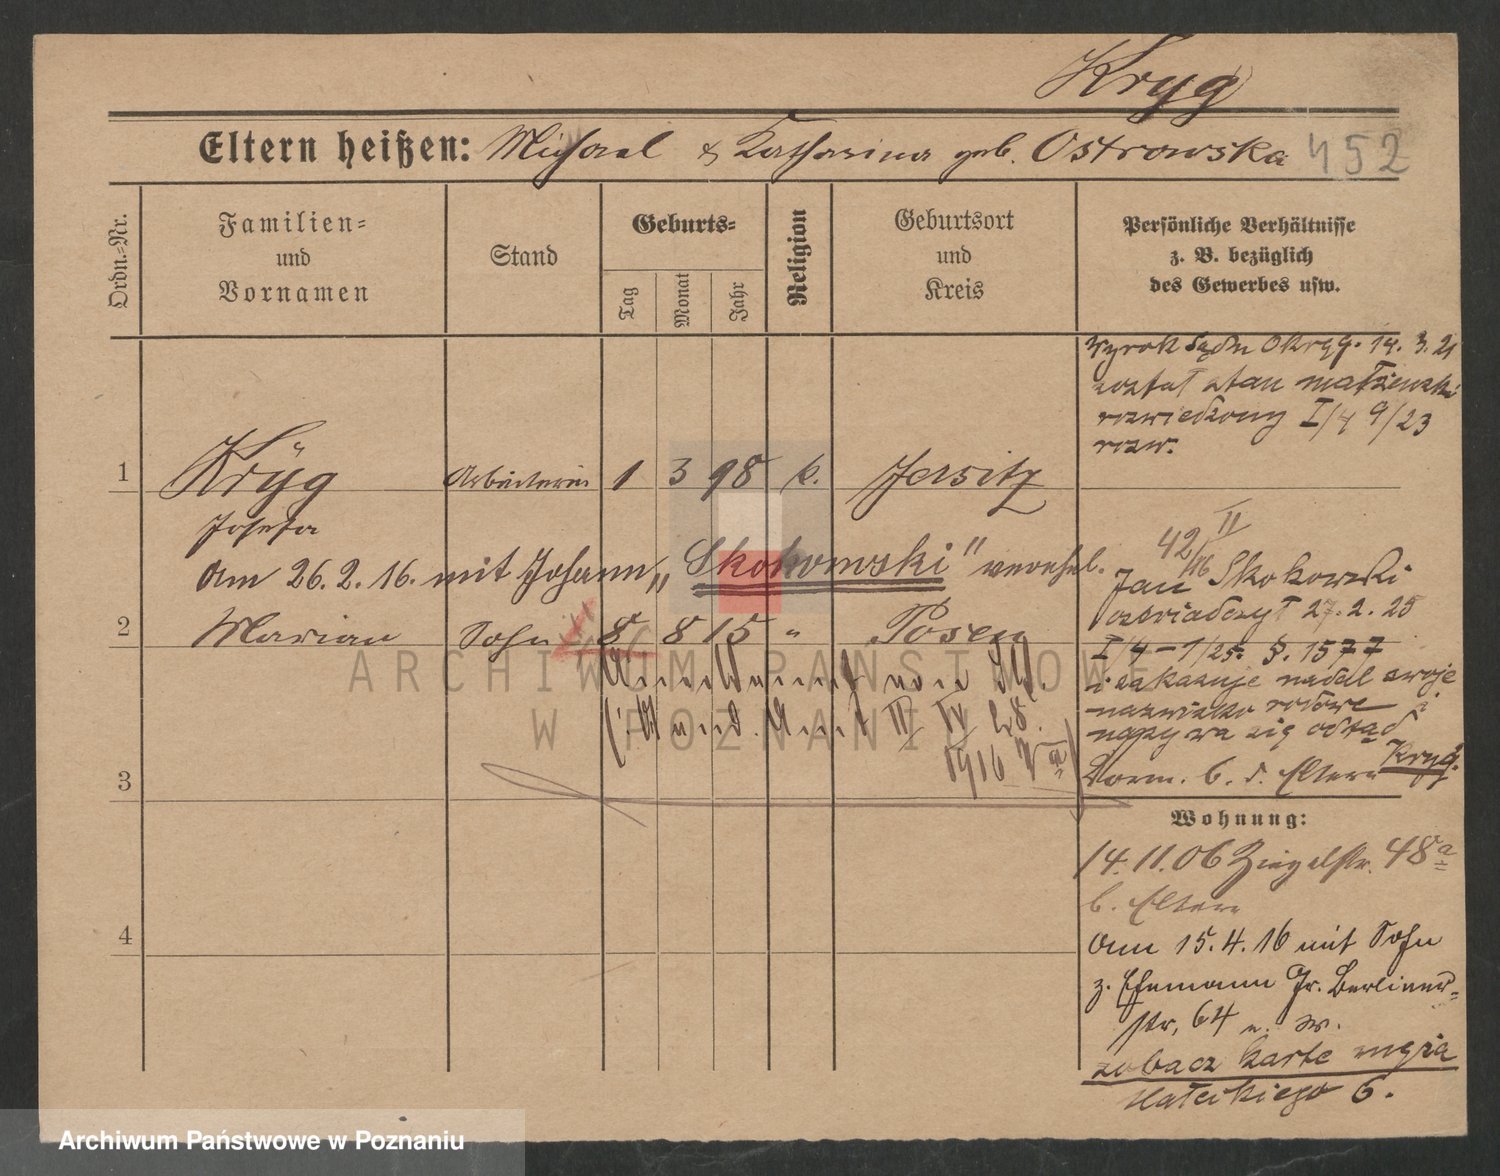 Kryg
Eltern heißen: Michael & Katharina geb. Ostrowska 452
Ordn.=Nr.
Familien=
und
Vornamen
Stand
Geburts=
Tag
Monat
Jahr
Religion
Geburtsort
und
Kreis
Persönliche Verhältnisse
z. B. bezüglich
des Gewerbes usw.
Wyrok Sądu Okręg. 14. 3. 21
został stan małżeński
rozwiedzony I/4 9/23
rozw.
1 Krÿg Arbeiterin 1 3 98 k. Jersitz
Josefa
Am 26. 2. 16. mit Johann „Skokowski" verehel.
42/16 II
Jan Skokowski
oświadczył 27. 2. 25
I/4 - 1/25. §. 1577
i zakazuje nadal swoje
nazwisko rodowe
nazywa się odtąd
Kryg.
2 Marian Sohn 8 8 15 " Posen
II IV 28.
1916
3
Dorm. b. d. Eltern
Wohnung:
14. 11. 06 Ziegelstr. 48a
b. Eltern
4
Am 15. 4. 16 mit Sohn
z. Ehemann Gr. Berliner=
str. 64 u. w.
zobacz kartę męża
Małeckiego 6.
ARCHIWUM PAŃSTWOWE
W POZNANIU
Archiwum Państwowe w Poznaniu